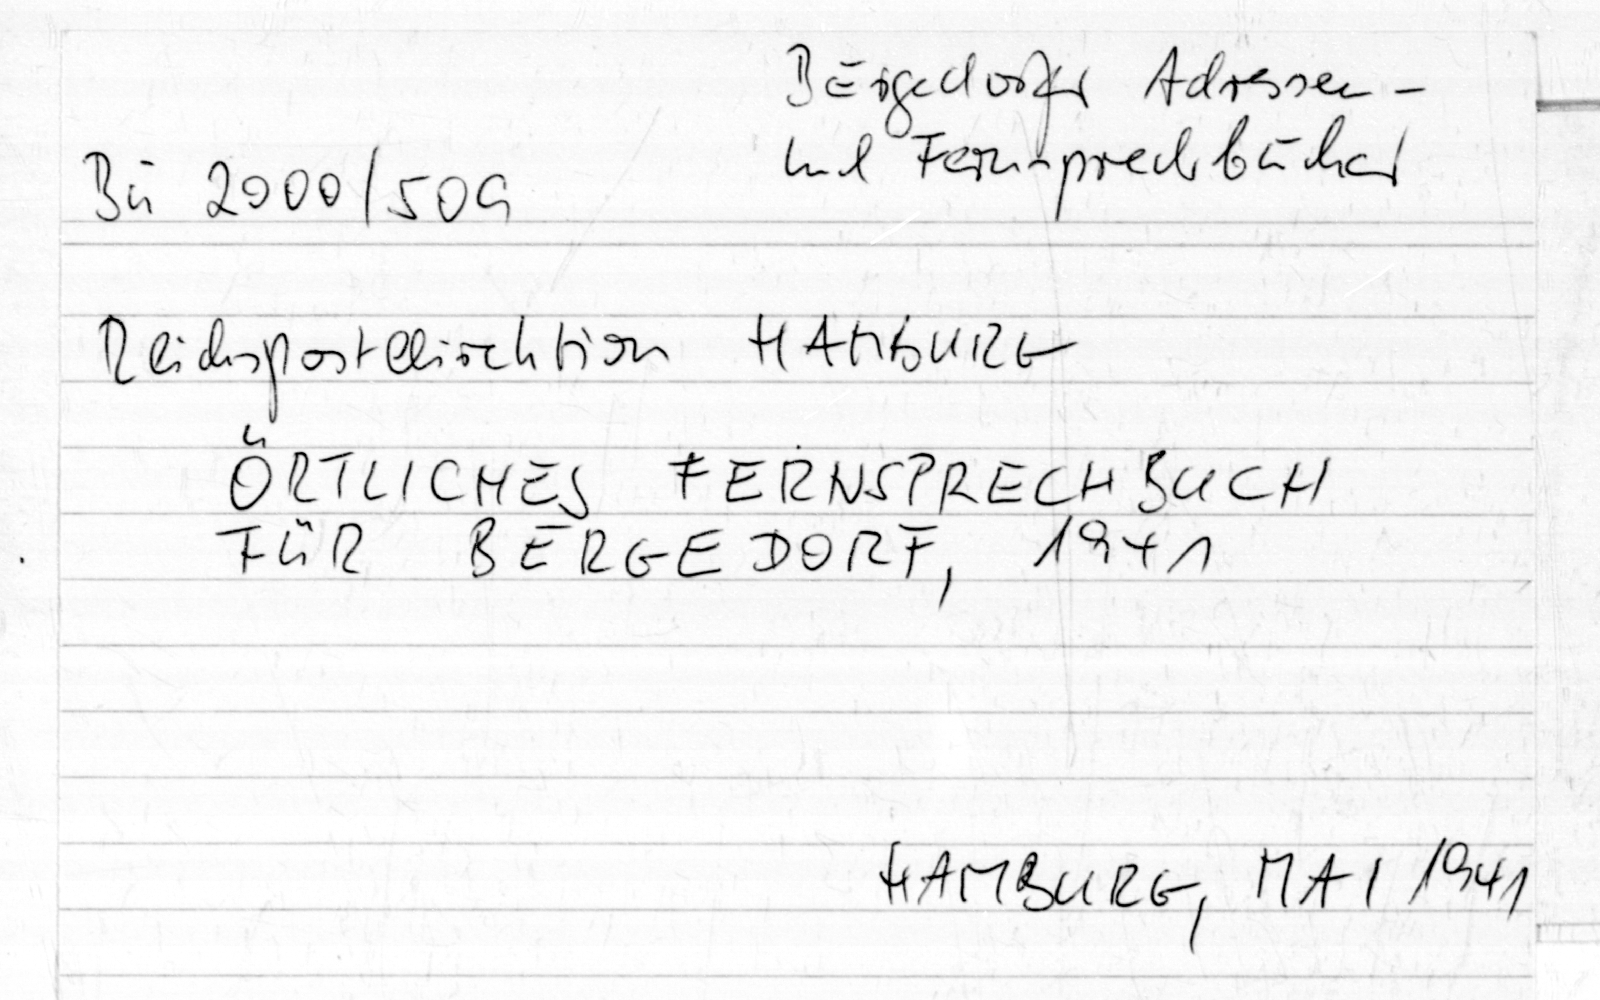 Bergedorfer Adressen-
und Fernsprechbücher
Bü 2000/509
Reichspostdirektion HAMBURG
ÖRTLICHES FERNSPRECHBUCH
FÜR BERGEDORF, 1941
HAMBURG, MAI 1941